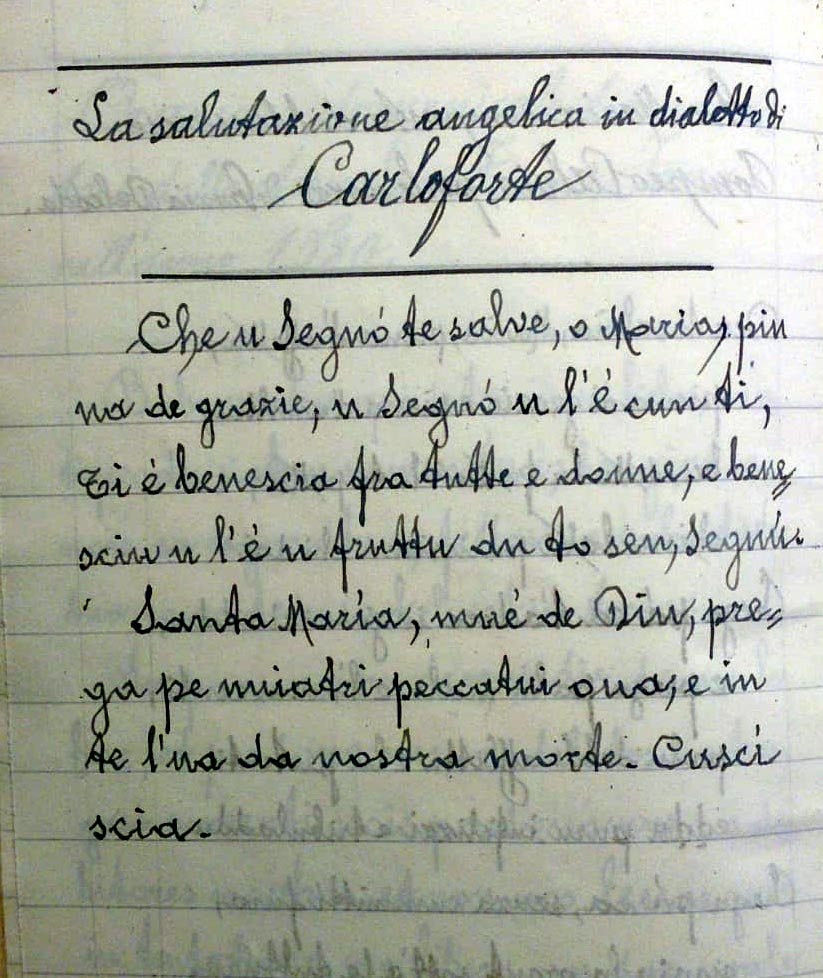 La salutazione angelica in dialetto di
Carloforte
Che u Segnó te salve, o Maria, pin
na de grazie, u Segnó u l'é cun ti,
Ti é benescia fra tutte e donne, e bene=
sciu u l'é u fruttu du to sen, Segnú.
Santa María, mué de Diu, pre=
ga pe nuiatri peccatui oua, e in
te l'ua da nostra morte. Cuscí
scia.